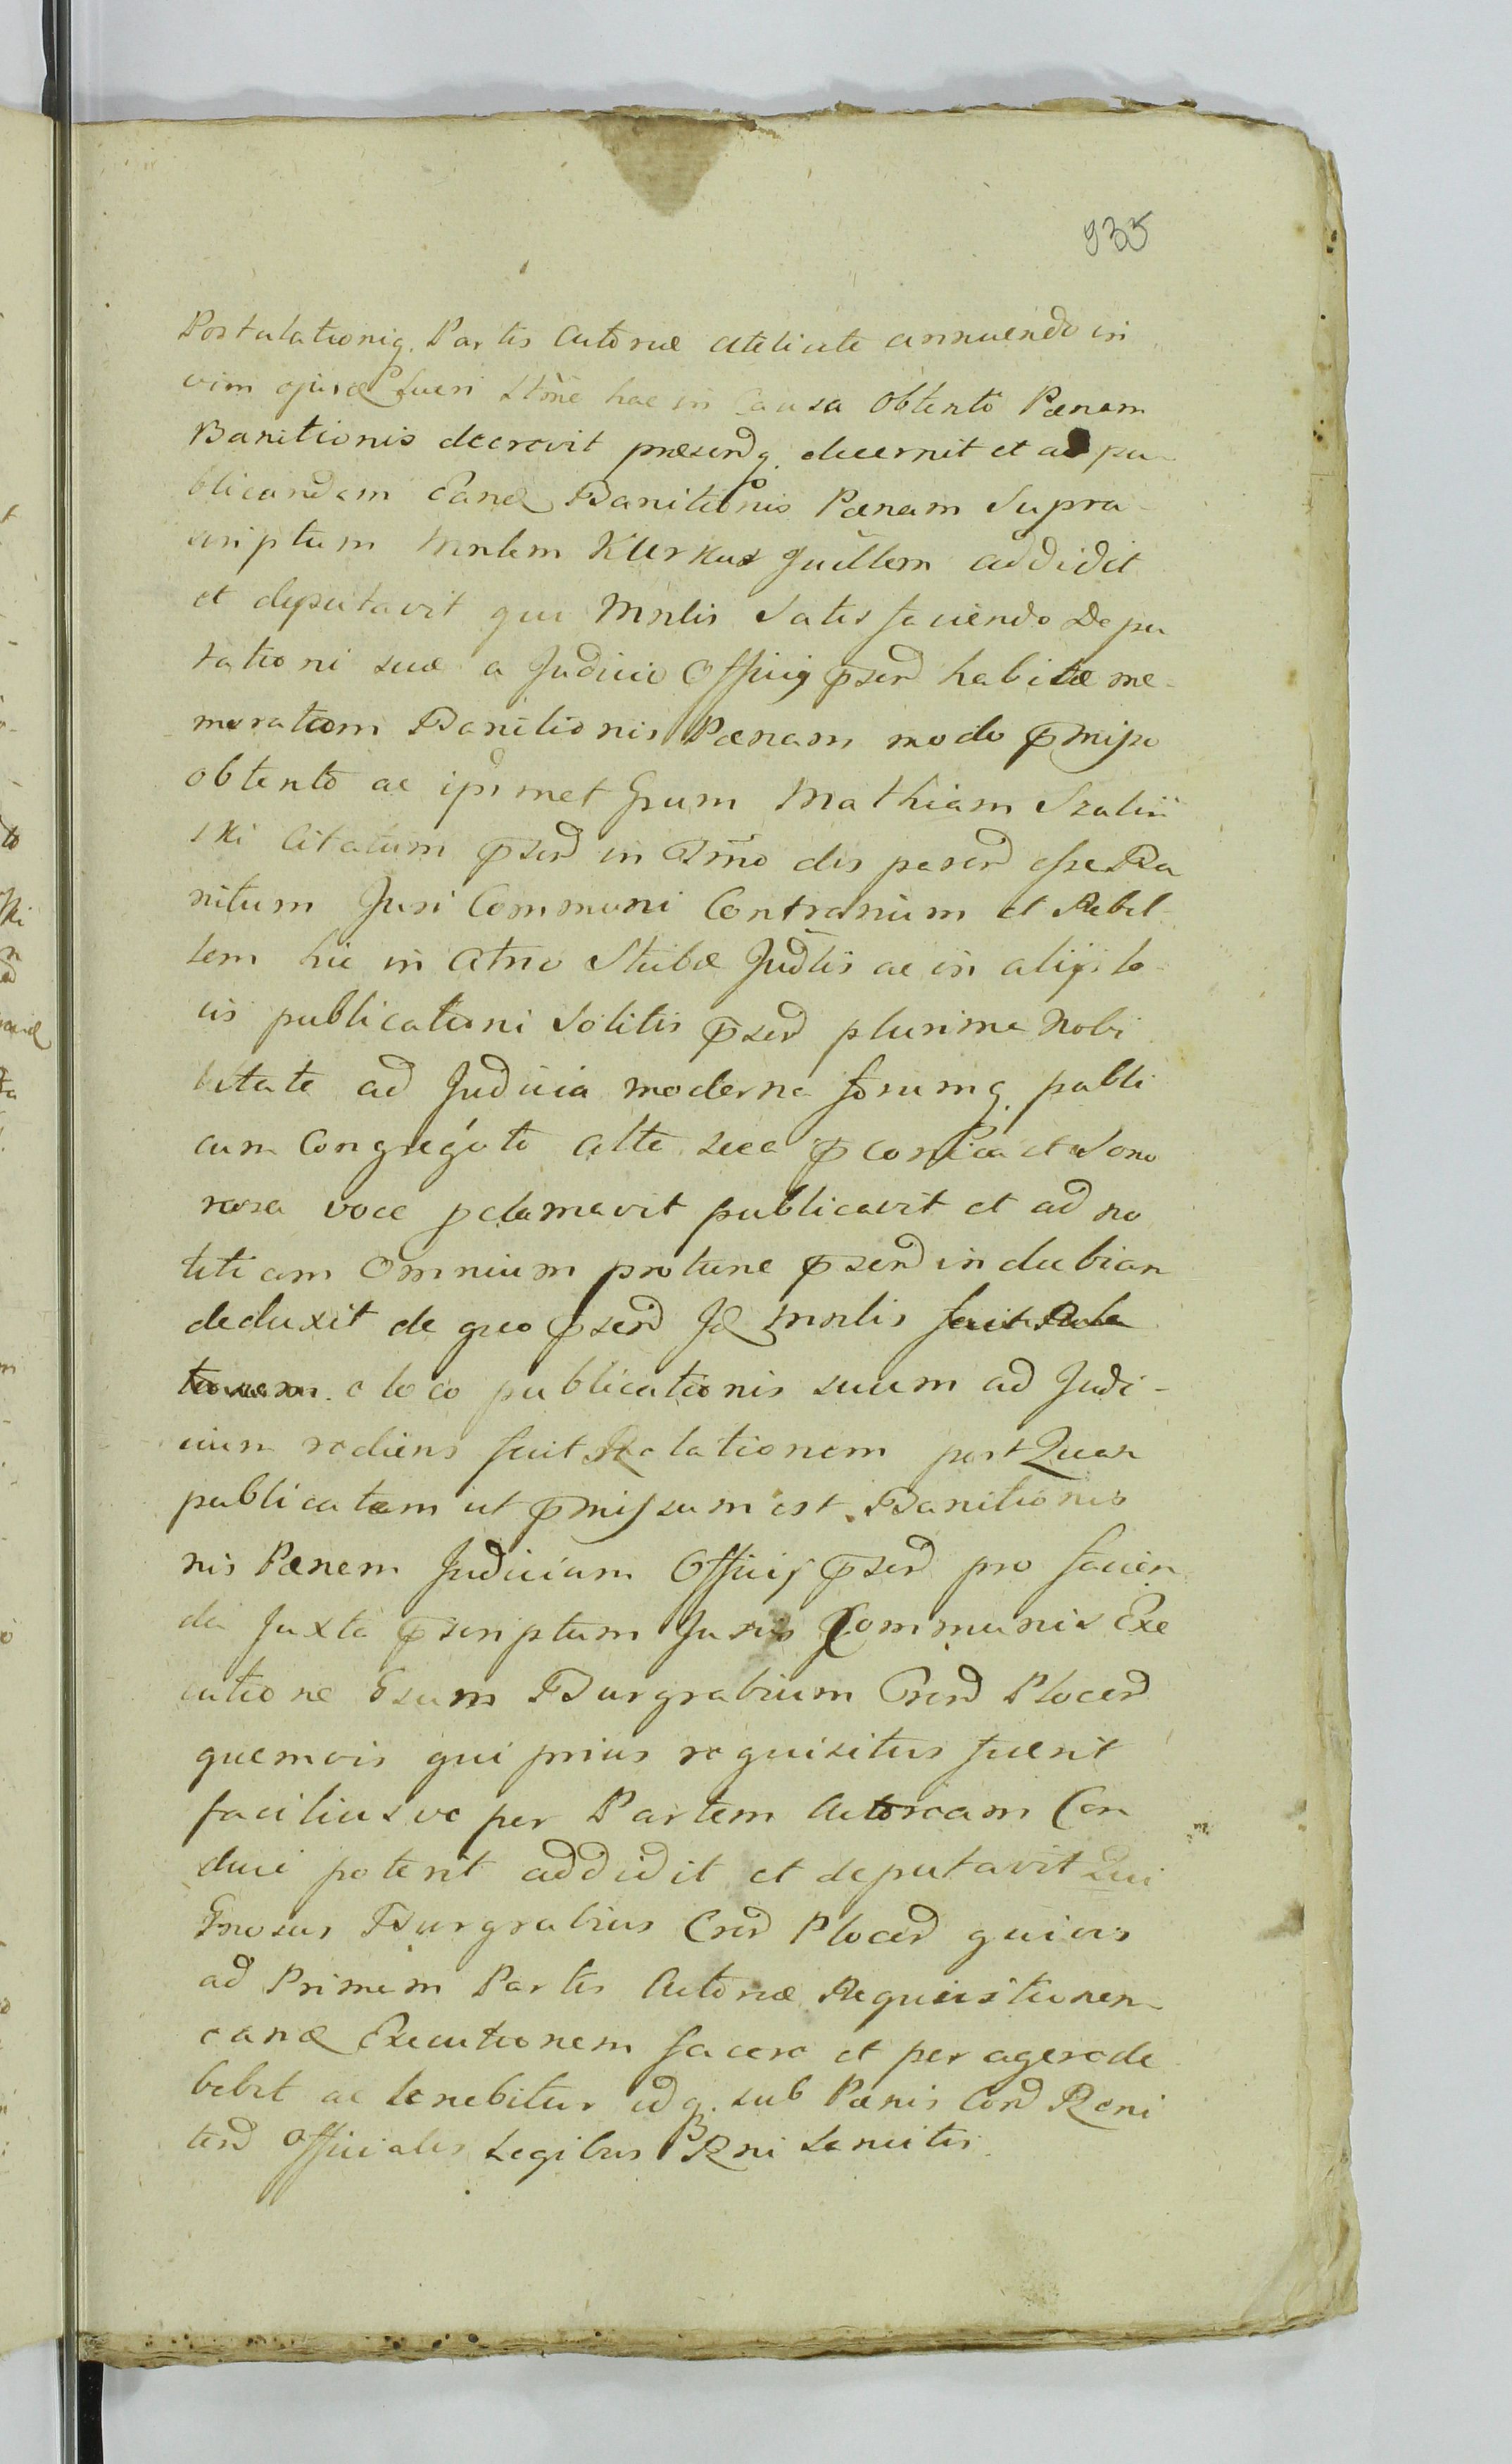 935
Postulationiq. Partis Actoreæ attente annuendo in
vim ejusd Lucri Stmē hac in Causa obtento Pænam
Banitionis decrevit præsend q. decernit et ad pu
blicandam Eand Banitionis Pænam Supra
scriptum Mnlem Klerkus Juitlem addidit
et deputavit qui Mnlis Satisfaciendo Depu
tationi suæ a Judicio Officij p̄send habitæ me-
moratam Banitionis Pænam modo p̄misso
obtento ac ipsmet Grum Mathiam Szaliń
ski Citatum p̄send in Tmō dis parend esse Ba
nitum Juri Communi Contrarium et Rebel-
lem hic in Atrio Stubæ Judlis ac in alijs lo-
cis publicationi Solitis p̄send plurima Nobi
litate ad Judicia moderna forumq. publi
cum Congregato alte sua p̄conica et Sono
rosa voce pclamavit publicavit et ad no
titiam Omnium protunc p̄send indubian
deduxit de quo p̄send Jd Mnlis fecit Rela
tionem. e loco publicationis suum ad Judi-
cium rediens fecit Relationem post Quam
publicatam ut p̄missum est. Banitionis
nis Pænam Judicium Officij p̄send pro facien
da Juxta p̄scriptum Juris Communis Exe
cutione Gsum Burgrabium Crend Plocend
quemvis qui prius requisitus fuerit
faciliusve per Partem Actoream Con
duci poterit addidit et deputavit Qui
Gnosus Burgrabius Crend Plocend quivis
ad Primam Partis Actoreæ Requisitionem
eand Executionem facere et per agere de
bebit ac tenebitur id q. sub Pænis Cond Reni
tend Officiales Legibus Rni sancitis.